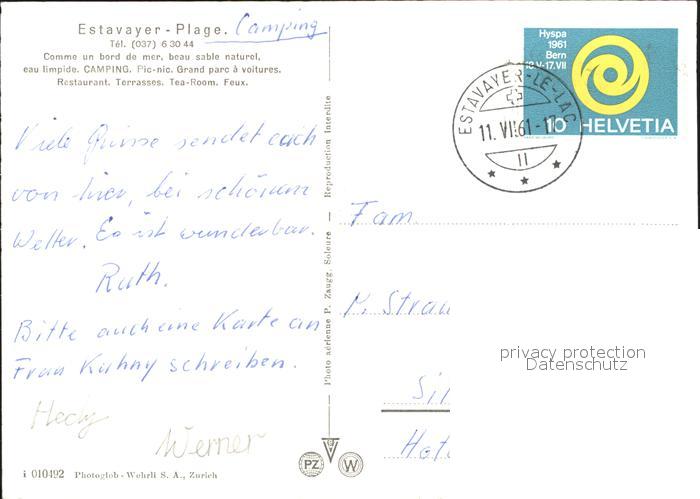 Estavayer - Plage. Camping
Tél. (037) 6 30 44
Comme un bord de mer, beau sable naturel,
eau limpide. CAMPING. Pic-nic. Grand parc à voitures.
Restaurant. Terrasses. Tea-Room. Feux.
Viele Grüsse sendet euch
von hier, bei schönem
Wetter. Es ist wunderbar.
Ruth.
Bitte auch eine Karte an
Frau Kuhny schreiben.
Hedy
Werner
i 010492 Photoglob - Wehrli S. A., Zurich
Photo aérienne P. Zaugg, Soleure — Reproduction Interdite
PZ W
Hyspa
1961
Bern
18.V-17.VII
10 HELVETIA
ESTAVAYER-LE-LAC
11. VII.61-17
II
Fam.
M. Strau
Sil
Hot
privacy protection
Datenschutz